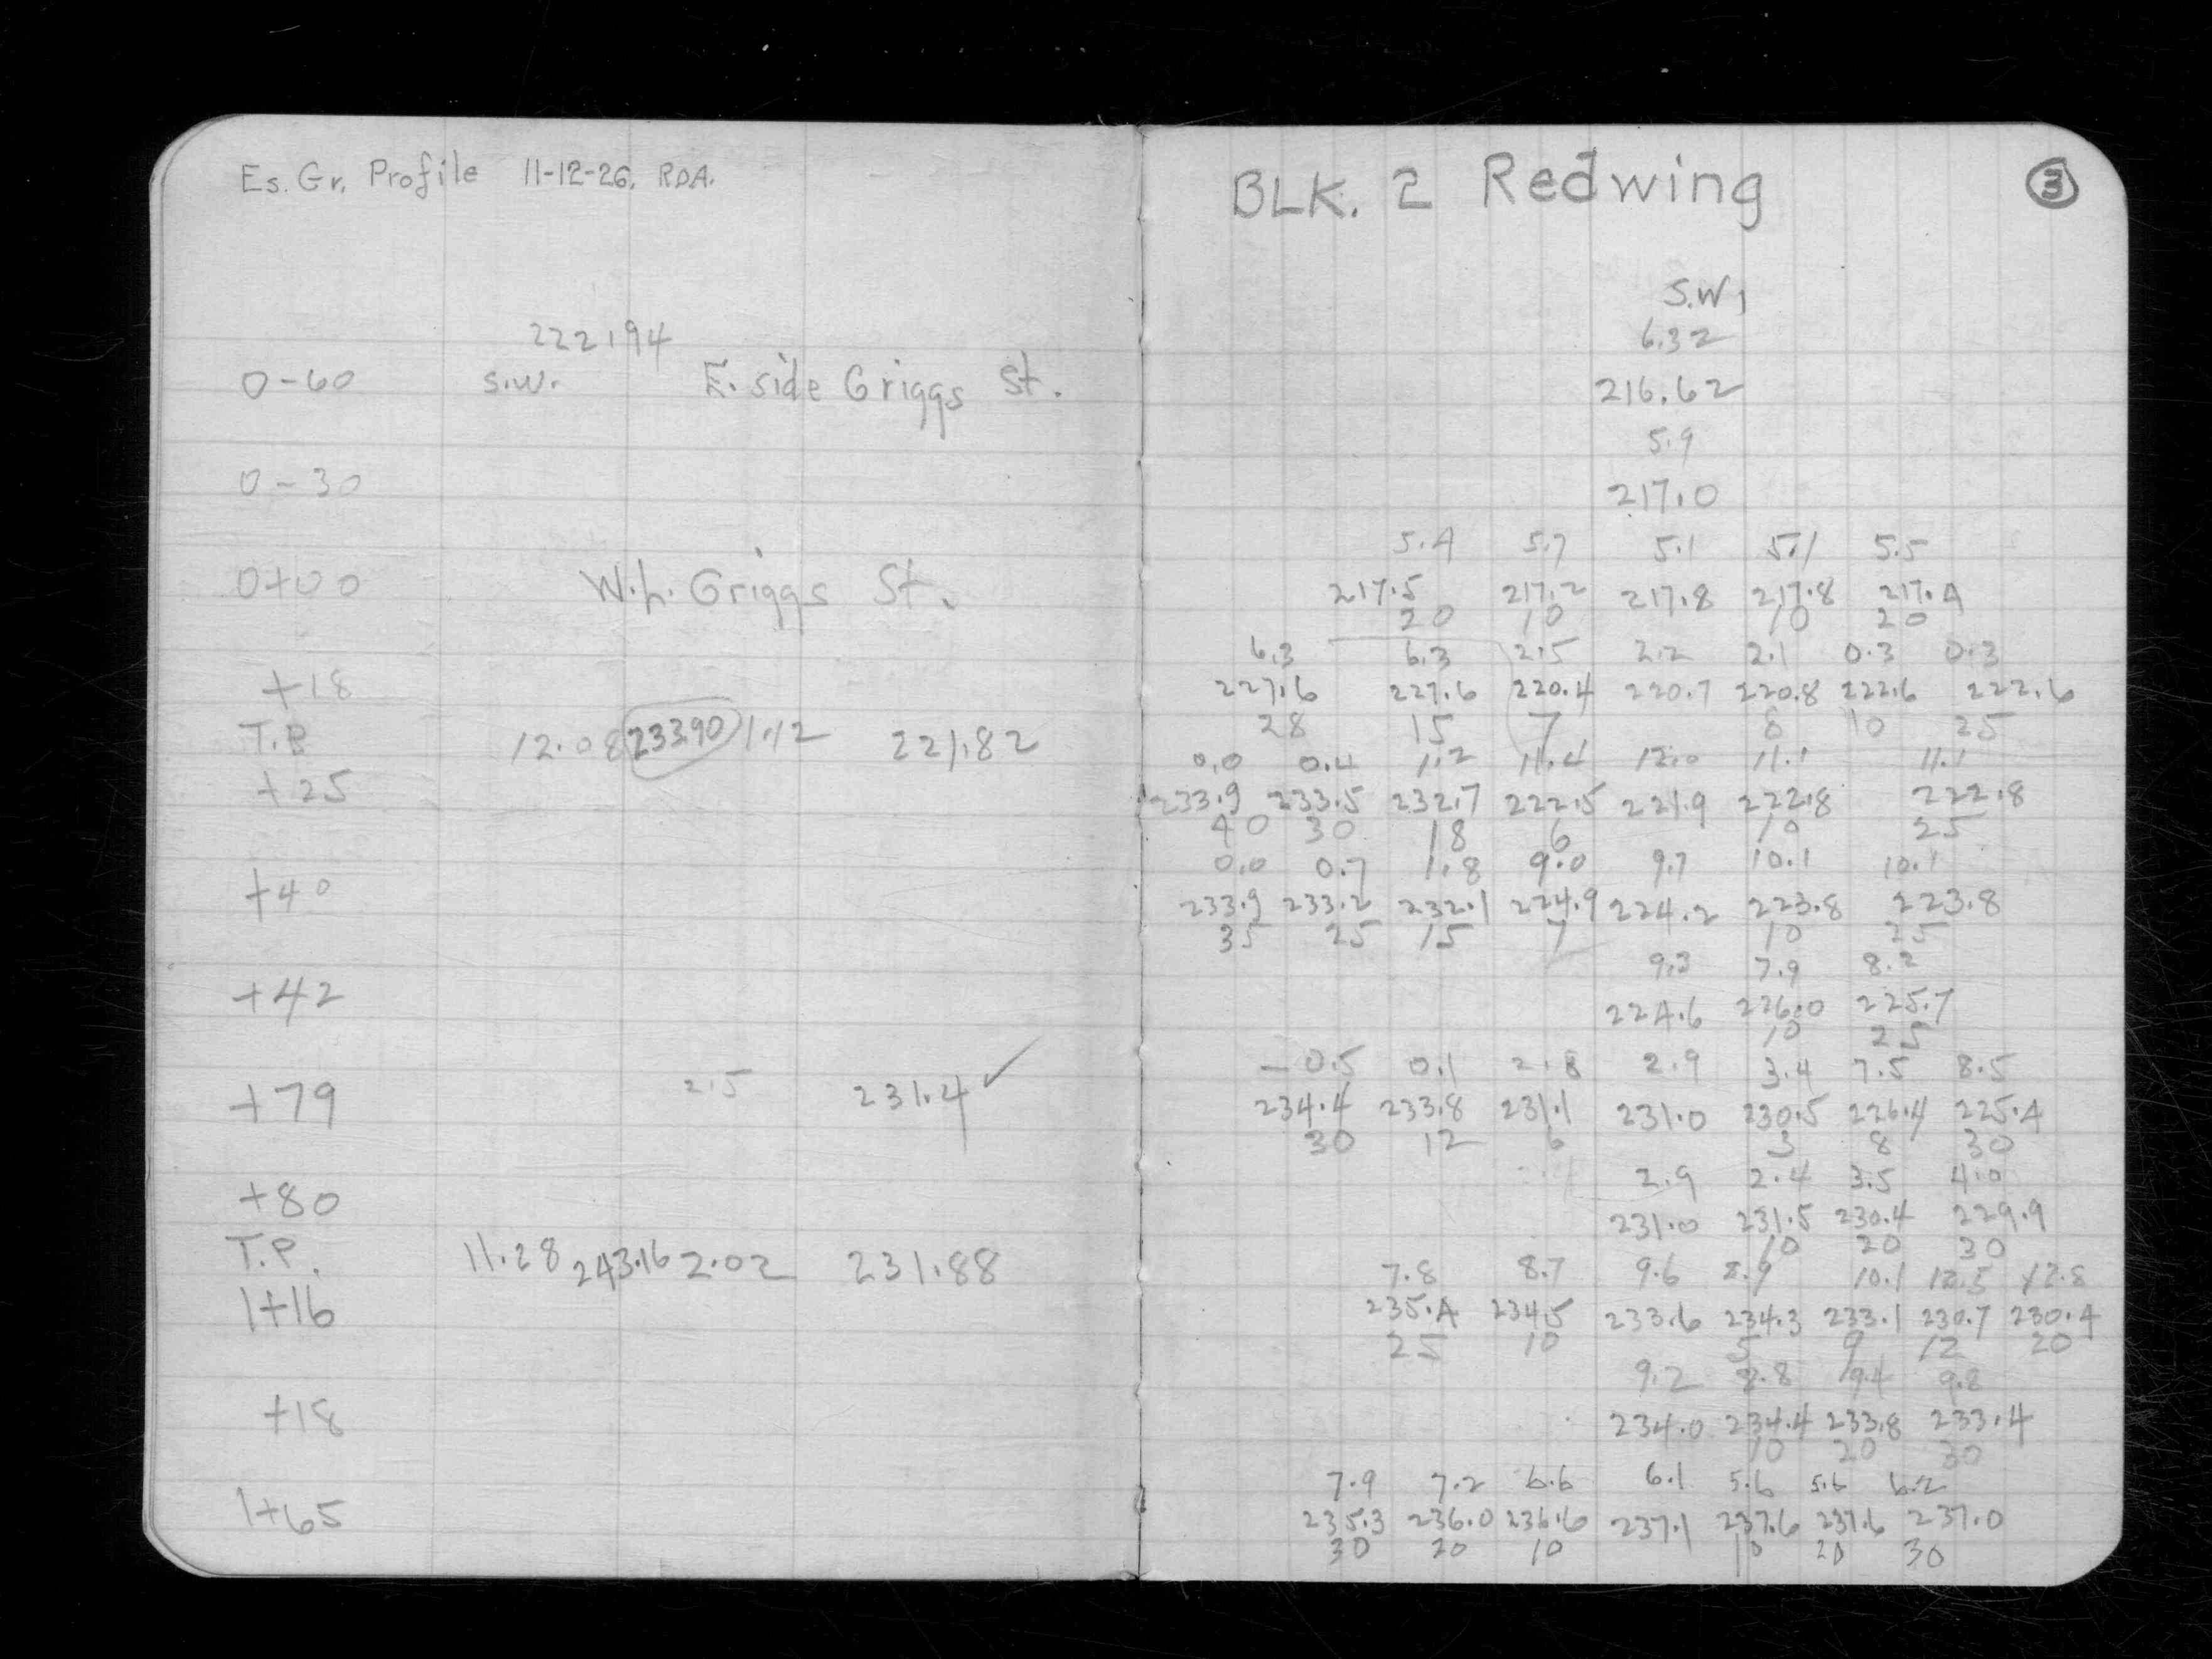 Es. Gr. Profile 11-12-26. RDA.
222.94
0-60 S.W. E. side Griggs St.
0-30
0+00 W.L. Griggs St.
+18
T.P. 12.08 233.90 1.12 221.82
+25
+40
+42
+79 2.5 231.4 ✓
+80
T.P. 11.28 243.16 2.02 231.88
1+16
+18
1+65
BLK. 2 Redwing 3
S.W.
6.32
216.62
5.9
217.0
5.4 5.7 5.1 5.1 5.5
217.5 217.2 217.8 217.8 217.4
20 10 10 20
6.3 6.3 2.5 2.2 2.1 0.3 0.3
227.6 227.6 220.4 220.7 220.8 222.6 222.6
28 15 7 8 10 25
0.0 0.4 1.2 11.4 12.0 11.1 11.1
233.9 233.5 232.7 222.5 221.9 222.8 222.8
40 30 18 6 10 25
0.0 0.7 1.8 9.0 9.7 10.1 10.1
233.9 233.2 232.1 224.9 224.2 223.8 223.8
35 25 15 7 10 25
9.3 7.9 8.2
224.6 226.0 225.7
10 25
-0.5 0.1 2.8 2.9 3.4 7.5 8.5
234.4 233.8 231.1 231.0 230.5 226.4 225.4
30 12 6 3 8 30
2.9 2.4 3.5 4.0
231.0 231.5 230.4 229.9
10 20 30
7.8 8.7 9.6 8.9 10.1 12.5 12.8
235.4 234.5 233.6 234.3 233.1 230.7 230.4
25 10 5 9 12 20
9.2 8.8 9.4 9.8
234.0 234.4 233.8 233.4
10 20 30
7.9 7.2 6.6 6.1 5.6 5.6 6.2
235.3 236.0 236.6 237.1 237.6 237.6 237.0
30 20 10 10 20 30